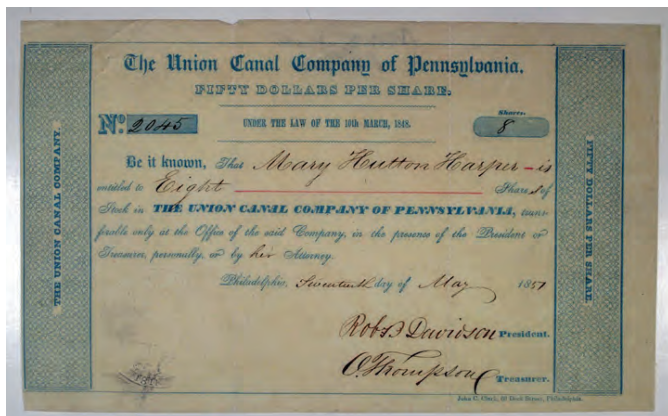 The Union Canal Company of Pennsylvania.
FIFTY DOLLARS PER SHARE.
Shares.
No. 2045 UNDER THE LAW OF THE 10th MARCH, 1848. 8
Be it known, That Mary Hutton Harper - is
entitled to Eight Shares of
Stock in THE UNION CANAL COMPANY OF PENNSYLVANIA, trans-
ferable only at the Office of the said Company, in the presence of the President or
Treasurer, personally, or by her Attorney.
Philadelphia, Seventeenth day of May 1851
Robt B Davidson President.
O. Thompson Treasurer.
John C. Clark, 60 Dock Street, Philadelphia.
THE UNION CANAL COMPANY.
FIFTY DOLLARS PER SHARE.